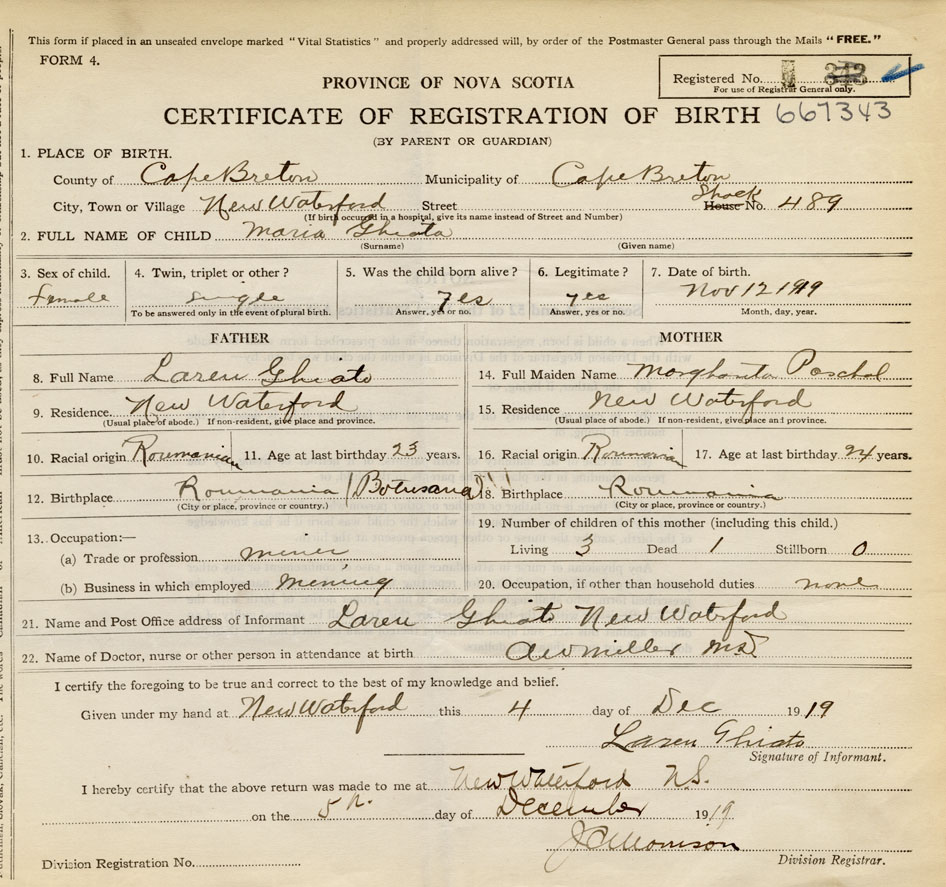 This form if placed in an unsealed envelope marked "Vital Statistics" and properly addressed will, by order of the Postmaster General pass through the Mails "FREE."
FORM 4.
Registered No. 343
For use of Registrar General only.
PROVINCE OF NOVA SCOTIA
CERTIFICATE OF REGISTRATION OF BIRTH 667343
(BY PARENT OR GUARDIAN)
1. PLACE OF BIRTH.
County of Cape Breton Municipality of Cape Breton
City, Town or Village New Waterford Street House Shack No. 489
(If birth occurred in a hospital, give its name instead of Street and Number)
2. FULL NAME OF CHILD Maria Ghiata
(Surname) (Given name)
3. Sex of child. 4. Twin, triplet or other? 5. Was the child born alive? 6. Legitimate? 7. Date of birth.
Female single yes yes Nov 12 1919
To be answered only in the event of plural birth. Answer, yes or no. Answer, yes or no. Month, day, year.
FATHER MOTHER
8. Full Name Laren Ghiato 14. Full Maiden Name Morghanta Paschal
9. Residence. New Waterford 15. Residence New Waterford
(Usual place of abode.) If non-resident, give place and province. (Usual place of abode.) If non-resident, give place and province.
10. Racial origin Roumanian 11. Age at last birthday 23 years. 16. Racial origin Roumania 17. Age at last birthday 24 years.
12. Birthplace Roumania (Botusana) 18. Birthplace Roumania
(City or place, province or country.) (City or place, province or country.)
13. Occupation:— 19. Number of children of this mother (including this child.)
(a) Trade or profession miner Living 3 Dead 1 Stillborn 0
(b) Business in which employed Mening 20. Occupation, if other than household duties none
21. Name and Post Office address of Informant Laren Ghiato New Waterford
22. Name of Doctor, nurse or other person in attendance at birth AW Miller MD
I certify the foregoing to be true and correct to the best of my knowledge and belief.
Given under my hand at New Waterford this 4 day of Dec 1919
Laren Ghiato
Signature of Informant.
I hereby certify that the above return was made to me at New Waterford N.S.
on the 5th. day of December 1919
Division Registration No.
Division Registrar.